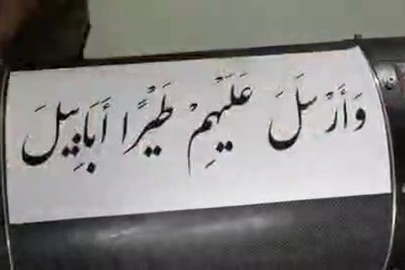 وَأَرْسَلَ عَلَيْهِمْ طَيْرًا أَبَابِيلَ